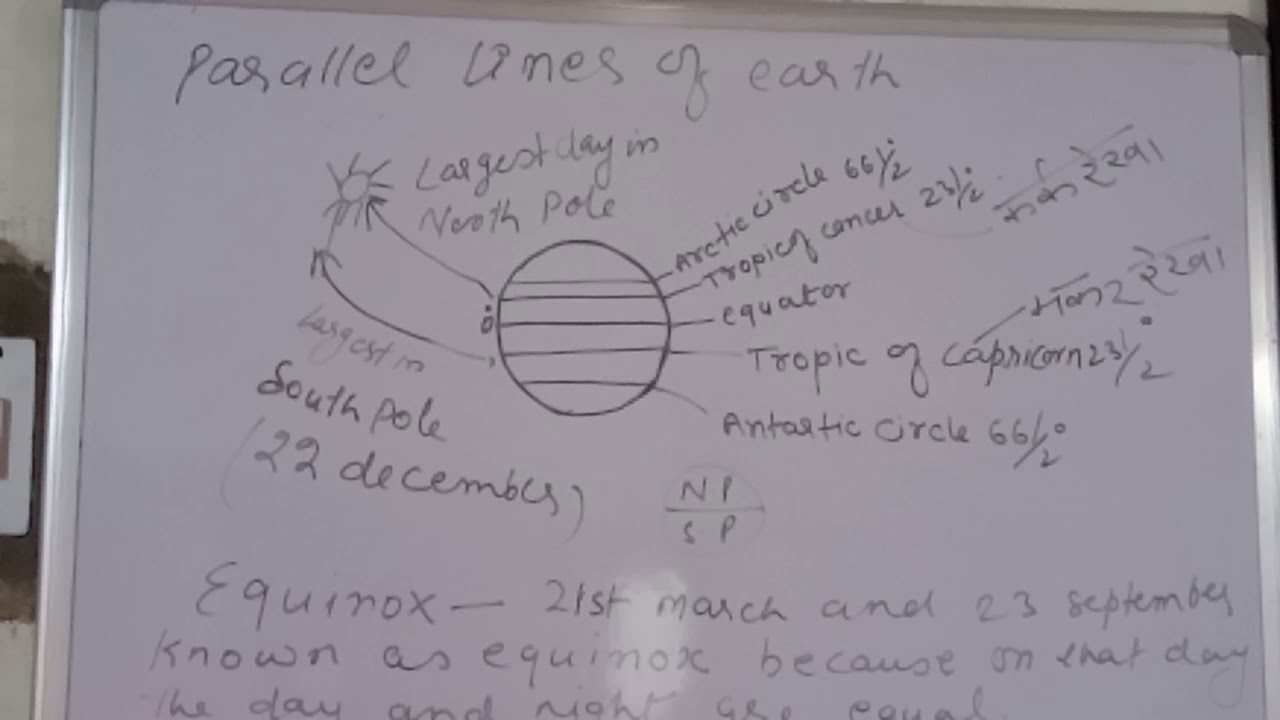 Parallel lines of earth
Largest day in
North Pole
Arctic circle 66½°
Tropic of cancer 23½°
कर्क रेखा
equator
0°
मकर रेखा
Tropic of Capricorn 23½°
Largest in
South pole
(22 december)
Antartic circle 66½°
N P
S P
Equinox — 21st march and 23 september
known as equinox because on that day
the day and night are equal